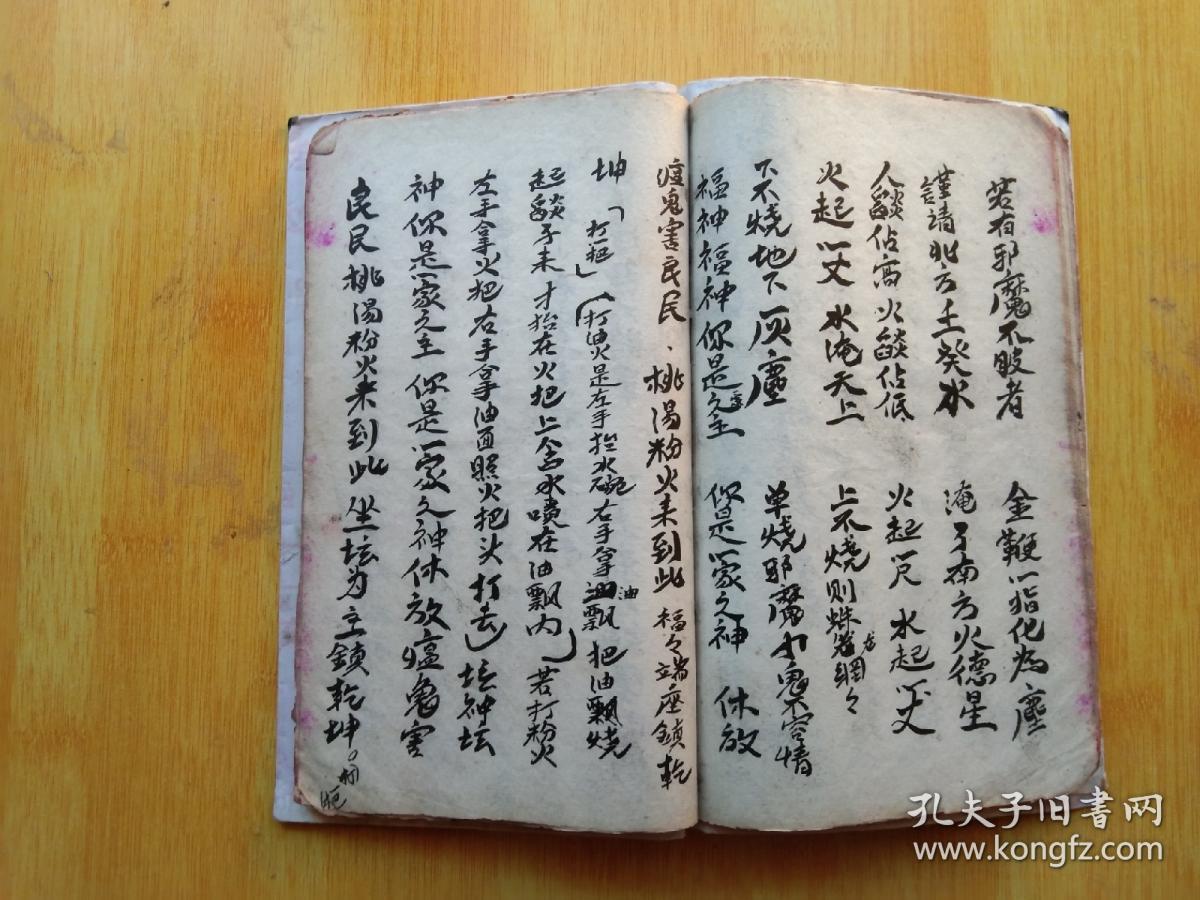 若有邪魔不服者 金鞭一指化為塵
謹請北方壬癸水 淹了南方火德星
人燄佔高火燄佔低 火起一尺 水起一丈
火起一丈 水淹天上 上不燒則蛛
下不燒地下灰塵 单燒邪魔 鬼不容情
福神福神你是之主 你是一家之神 休放
瘟鬼害良民、桃湯粉火来到此 福々端座鎮乾
坤「打粑」（打油火是左手抬水碗右手拿油飘 把油飘燒
起燄子来才抬在火把上含水喷在油飘内」若打粉火
左手拿火把右手拿油面照火把头打去」坛神坛
神你是一家之主 你是一家之神休放瘟鬼害
良民 桃湯粉火来到此 坐坛为主鎮乾坤。
孔夫子旧书网
www.kongfz.com